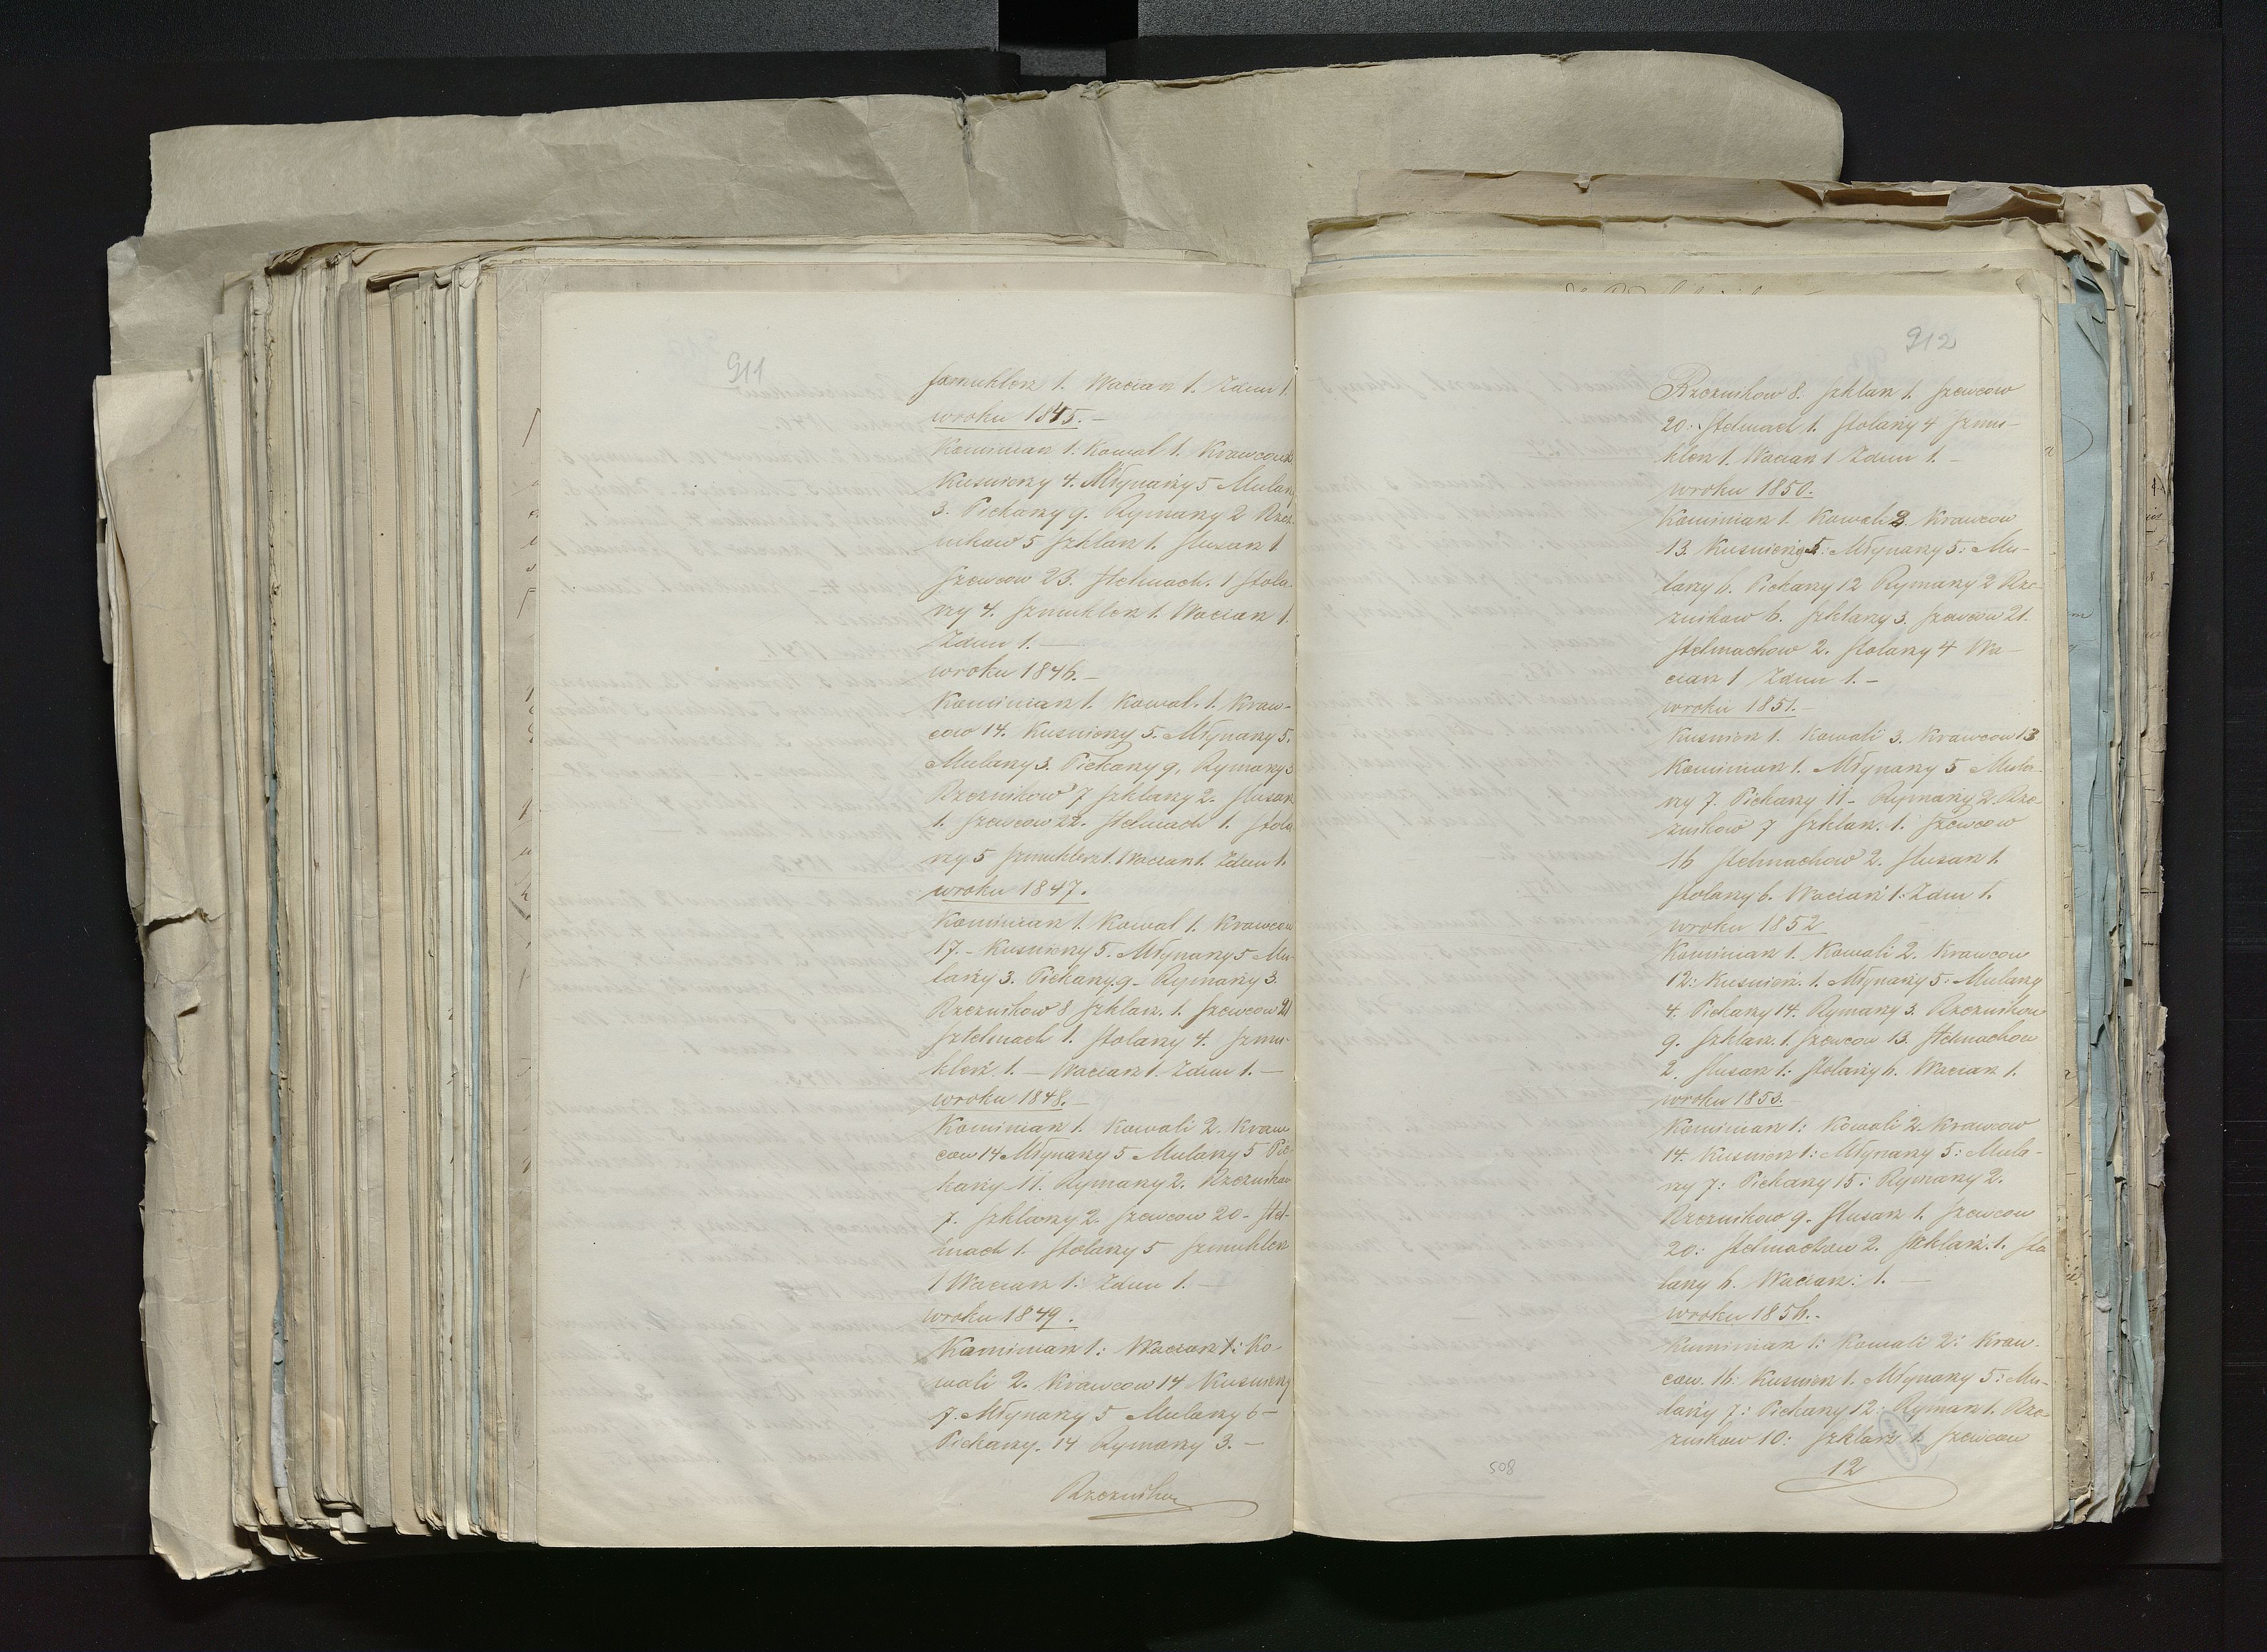 911
szmuklerz 1. Waciarz 1. Zdun 1.
wroku 1845.-
Kominiarz 1. Kowal 1. Krawcow
Kusnierzy 4. Młynarzy 5 Mularzy
3. Piekarzy 9. Rymarzy 2 Rzez-
nikow 5 Szklarz 1. Slusarz 1
Szewcow 23. Stelmach. 1 Stola-
rzy 4. Szmuklerz 1. Waciarz 1.
Zdun 1. —
wroku 1846.-
Kominiarz 1. Kowal. 1. Kraw-
cow 14. Kusnierzy 5. Młynarzy 5.
Mularzy 3. Piekarzy 9, Rymarzy 3
Rzeznikow 7 Szklarzy 2. Slusarz
1. Szewcow 22. Stelmach 1. Stola
rzy 5 Szmuklerz 1. Waciarz 1. Zdun 1.
wroku 1847.
Kominiarz 1. Kowal 1. Krawcow
17.- Kusnierzy 5. Młynarzy 5 Mu-
larzy 3. Piekarzy 9- Rymarzy 3.
Rzeznikow 8 Szklarz. 1. Szewcow 21
Sztelmach 1. Stolarzy 4. Szmu-
klerz. 1. — Waciarz 1. Zdun 1. —
wroku 1848.-
Kominiarz 1. Kowali 2. Kraw
cow 14 Młynarzy 5 Mularzy 5 Pie
karzy 11. Rymarzy 2. Rzeznikow
7. Szklarzy 2. Szewcow 20- Stel-
mach 1. Stolarzy 5 Szmuklerz
1 Waciarz 1: Zdun 1. —
wroku 1849.
Kominiarz 1: Waciarz 1: Ko-
wali 2. Krawcow 14 Kusnierzy
7. Młynarzy 5 Mularzy 6-
Piekarzy. 14 Rymarzy 3. —
Rzeznikow
912
Rzeznikow 8. Szklarz 1. Szewcow
20. Stelmach 1. Stolarzy 4 Szmu-
klerz 1. Waciarz 1 Zdun 1. -
wroku 1850.
Kominiarz 1. Kowali 3. Krawcow
13. Kusnierzy 5: Młynarzy 5: Mu-
larzy 6. Piekarzy 12 Rymarzy 2 Rze-
znikow 6. Szklarzy 3. Szewcow 21.
Stelmachow 2. Stolarzy 4 Wa-
ciarz 1 Zdun 1. -
wroku 1851.-
Kusnierz 1. Kowali 3. Krawcow 13
Kominiarz 1. Młynarzy 5 Mula-
rzy 7. Piekarzy 11- Rymarzy 2. Rze-
znikow 7 Szklarz. 1. Szewcow
16 Stelmachow 2. Slusarz 1.
Stolarzy 6. Waciarz 1: Zdun 1.
wroku 1852
Kominiarz 1. Kowali 2. Krawcow
12: Kusnierz. 1. Młynarzy 5: Mularzy
4. Piekarzy 14. Rymarzy 3. Rzeznikow
9. Szklarz. 1. Szewcow 13. Stelmachow
2. Slusarz 1: Stolarzy 6. Waciarz 1.
wroku 1853.
Kominiarz 1: Kowali 2. Krawcow
14. Kusnierz 1: Młynarzy 5: Mula-
rzy 7: Piekarzy 15: Rymarzy 2.
Rzeznikow 9. Slusarz 1. Szewcow
20: Stelmachow 2. Szklarz. 1. Sto
larzy 6. Waciarz: 1. —
wroku 1856.-
Kominiarz 1: Kowali 2: Kraw-
cow. 16: Kusnierz 1. Młynarzy 5: Mu-
larzy 7: Piekarzy 12: Rymarz 1. Rze-
znikow 10: Szklarz 1: Szewcow
12
508